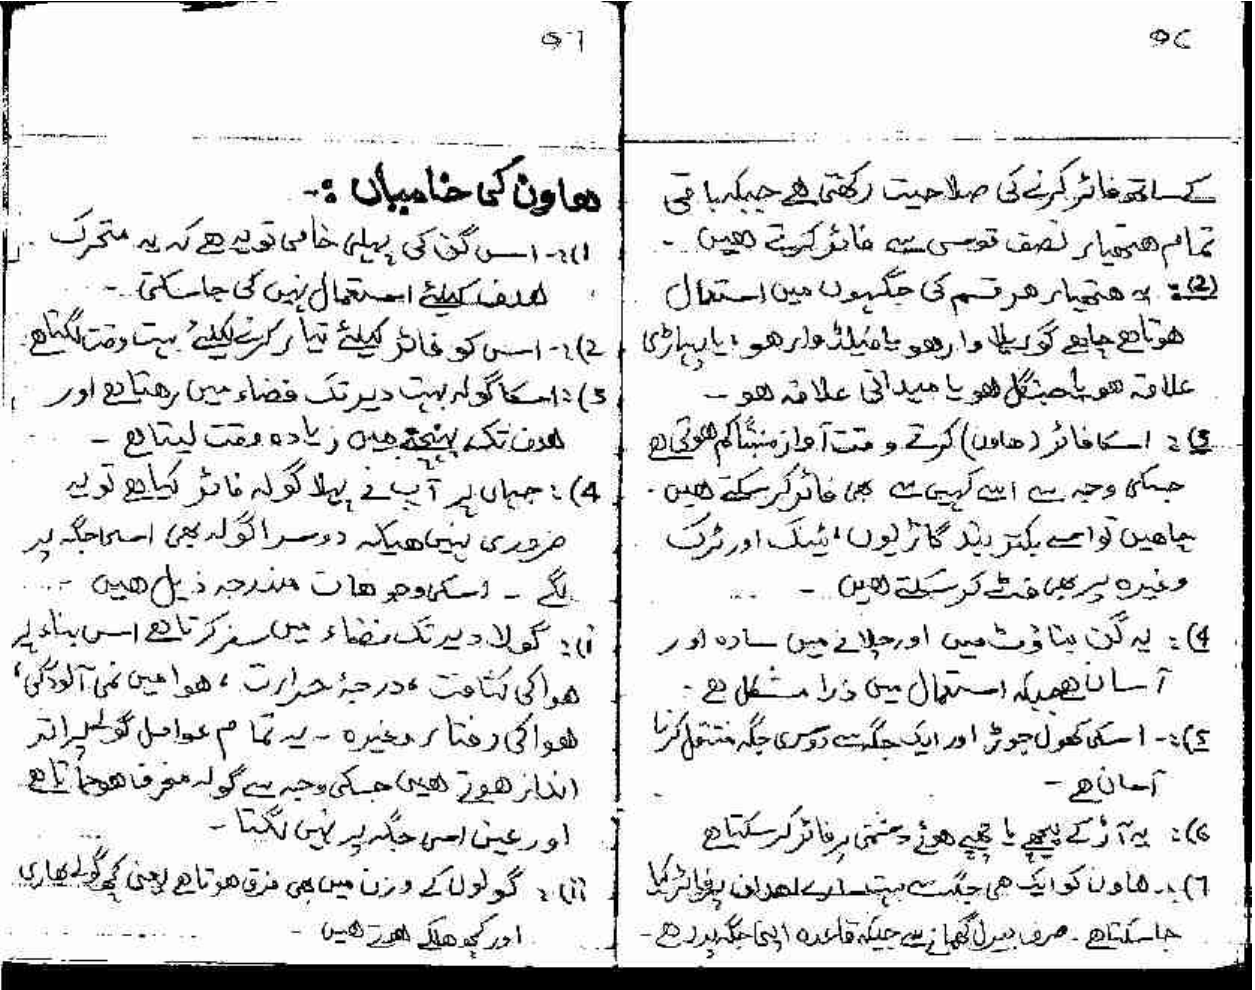 96
کے ساتھ فائر کرنے کی صلاحیت رکھتی ہے جبکہ باقی
تمام ھتھیار نصف قوسی سے فائر کرتے ھیں -
(2): یہ ھتھیار ھر قسم کی جگہوں میں استعمال
ھوتا ھے چاھے گوریلا وار ھو یا فیلڈ وار ھو، یا پہاڑی
علاقہ ھو یا جنگل ھو یا میدانی علاقہ ھو -
3): اسکا فائر (ھاون) کرتے وقت آواز نسبتاً کم ھوتی ھے
جسکی وجہ سے اسے کہیں سے بھی فائر کر سکتے ھیں -
چاھیں تو اسے بکتر بند گاڑیوں، ٹینک اور ٹرک
وغیرہ پر بھی فٹ کر سکتے ھیں -
4): یہ گن بناوٹ میں اور چلانے میں سادہ اور
آسان ھے جبکہ استعمال میں ذرا مشکل ھے -
5):- اسکی کھول جوڑ اور ایک جگہ سے دوسری جگہ منتقل کرنا
آسان ھے -
6): یہ آڑ کے پیچھے یا چھپے ھوئے دشمن پر فائر کر سکتا ھے
7):- ھاون کو ایک ھی جگہ سے بہت سارے اھداف پر فائر کیا
جا سکتا ھے - صرف بیرل گھمانے سے جبکہ قاعدہ اپنی جگہ پر رھے -
97
ھاون کی خامیاں :-
1):- اس گن کی پہلی خامی تو یہ ھے کہ یہ متحرک
ھدف کیلئے استعمال نہیں کی جا سکتی -
2):- اس کو فائر کیلئے تیار کرنے کیلئے بہت وقت لگتا ھے
3): اسکا گولہ بہت دیر تک فضاء میں رھتا ھے اور
ھدف تک پہنچنے میں زیادہ وقت لیتا ھے -
4): جہاں پر آپ نے پہلا گولہ فائر کیا ھے تو یہ
ضروری نہیں ھیکہ دوسرا گولہ بھی اسی جگہ پر
لگے - اسکی وجوھات مندرجہ ذیل ھیں -
i): گولا دیر تک فضاء میں سفر کرتا ھے اس بناء پر
ھوا کی کثافت، درجۂ حرارت، ھوا میں نمی آلودگی،
ھوا کی رفتار وغیرہ - یہ تمام عوامل گولہ پر اثر
انداز ھوتے ھیں جسکی وجہ سے گولہ منحرف ھو جاتا ھے
اور عین اسی جگہ پر نہیں لگتا -
ii): گولوں کے وزن میں بھی فرق ھوتا ھے یعنی کچھ گولے بھاری
اور کچھ ھلکے ھوتے ھیں -